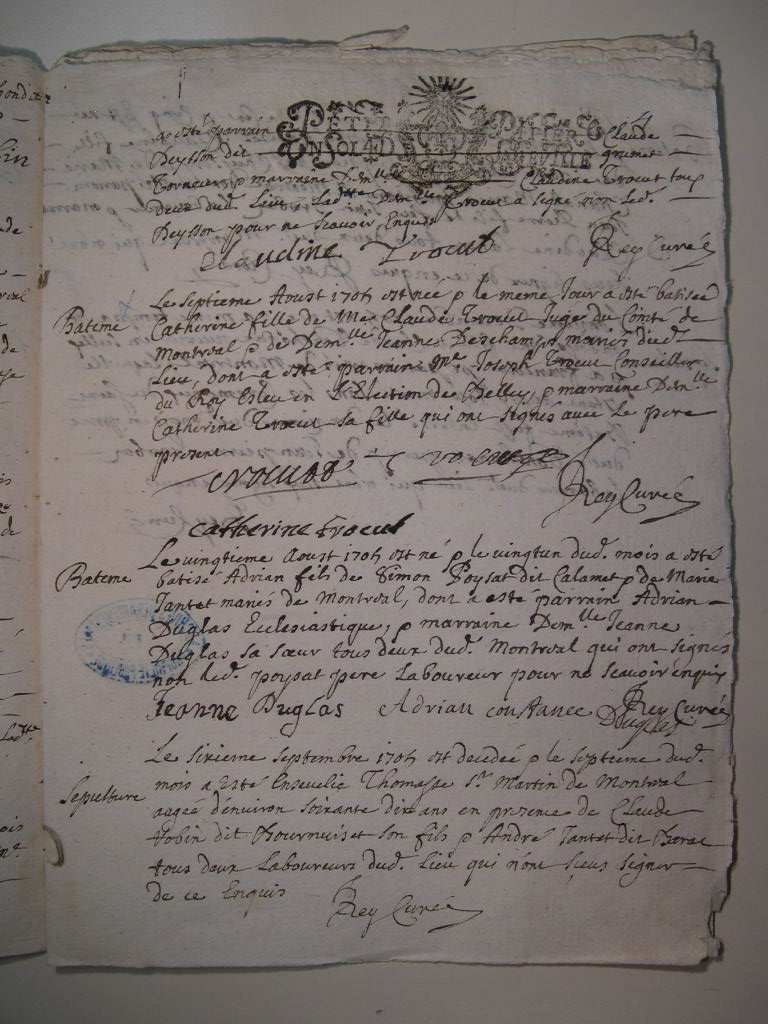 a esté parrain Claude
Peysson dit grumet
Tornier, & marraine Dem.lle Claudine Trocut tous
deux dud. Lieu, Lad.tte Dem.lle Trocut a signé non led.
Peysson pour ne scavoir Enquis
Claudine Trocut Rey Curé
PETIT PAPIER
EN SOL 4 D FEUILLE
Batême
Le septieme Aoust 1705 est née & le meme Jour a esté batisée
Catherine fille de Me Claude Trocut Juge du Comté de
Montreal & de Dem.lle Jeanne Deschamps mariés dud.
Lieu, dont a esté parrain Mr. Joseph Trocut Conseiller
du Roy Esleu en L'Election de Belley, & marraine Dem.lle
Catherine Trocut sa fille qui ont signés avec le pere
present
Trocut Trocut
Rey Curé
Catherine trocut
Bateme
Le vingtieme Aoust 1705 est né & le vingtun dud. mois a esté
batisé Adrian fils de Simon Poysat dit Calamet & de Marie
Tantet mariés de Montreal, dont a esté parrain Adrian
Duglas Ecclesiastique, & marraine Dem.lle Jeanne
Duglas sa sœur tous deux dud. Montreal qui ont signés
non led. poysat pere Laboureur pour ne scavoir enquis
Jeanne Duglas Adrian constance Duglas Rey Curé
Sepulture
Le sixieme septembre 1705 est decedée & le septieme dud.
mois a Esté Ensevelie Thomasse St. Martin de Montreal
aagée d'environ soixante dix ans en presence de Claude
Jobin dit et son fils & André Tantet dit
tous deux Laboureurs dud. Lieu qui n'ont sceus signer
de ce Enquis
Rey Curé